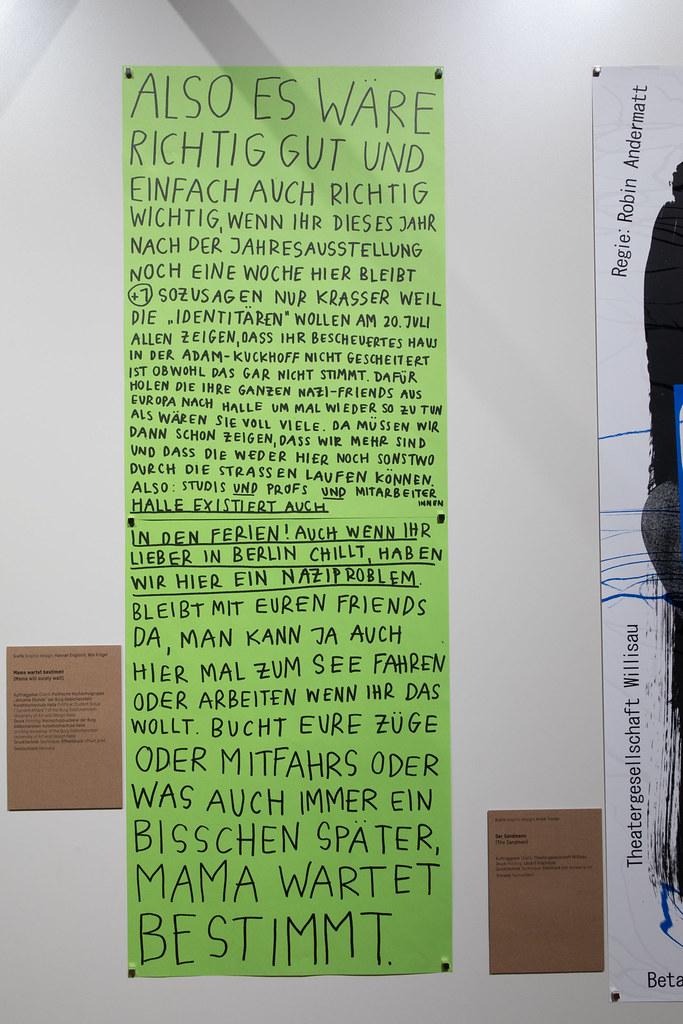 ALSO ES WÄRE
RICHTIG GUT UND
EINFACH AUCH RICHTIG
WICHTIG, WENN IHR DIESES JAHR
NACH DER JAHRESAUSSTELLUNG
NOCH EINE WOCHE HIER BLEIBT
+1 SOZUSAGEN NUR KRASSER WEIL
DIE „IDENTITÄREN" WOLLEN AM 20. JULI
ALLEN ZEIGEN, DASS IHR BESCHEUERTES HAUS
IN DER ADAM-KUCKHOFF NICHT GESCHEITERT
IST OBWOHL DAS GAR NICHT STIMMT. DAFÜR
HOLEN DIE IHRE GANZEN NAZI-FRIENDS AUS
EUROPA NACH HALLE UM MAL WIEDER SO ZU TUN
ALS WÄREN SIE VOLL VIELE. DA MÜSSEN WIR
DANN SCHON ZEIGEN, DASS WIR MEHR SIND
UND DASS DIE WEDER HIER NOCH SONSTWO
DURCH DIE STRASSEN LAUFEN KÖNNEN.
ALSO: STUDIS UND PROFS UND MITARBEITER
INNEN
HALLE EXISTIERT AUCH
IN DEN FERIEN! AUCH WENN IHR
LIEBER IN BERLIN CHILLT, HABEN
WIR HIER EIN NAZIPROBLEM.
BLEIBT MIT EUREN FRIENDS
DA, MAN KANN JA AUCH
HIER MAL ZUM SEE FAHREN
ODER ARBEITEN WENN IHR DAS
WOLLT. BUCHT EURE ZÜGE
ODER MITFAHRS ODER
WAS AUCH IMMER EIN
BISSCHEN SPÄTER,
MAMA WARTET
BESTIMMT.
Mama wartet bestimmt
(Mama will surely wait)
Der Sandmann
(The Sandman)
Regie: Robin Andermatt
Theatergesellschaft Willisau
Beta